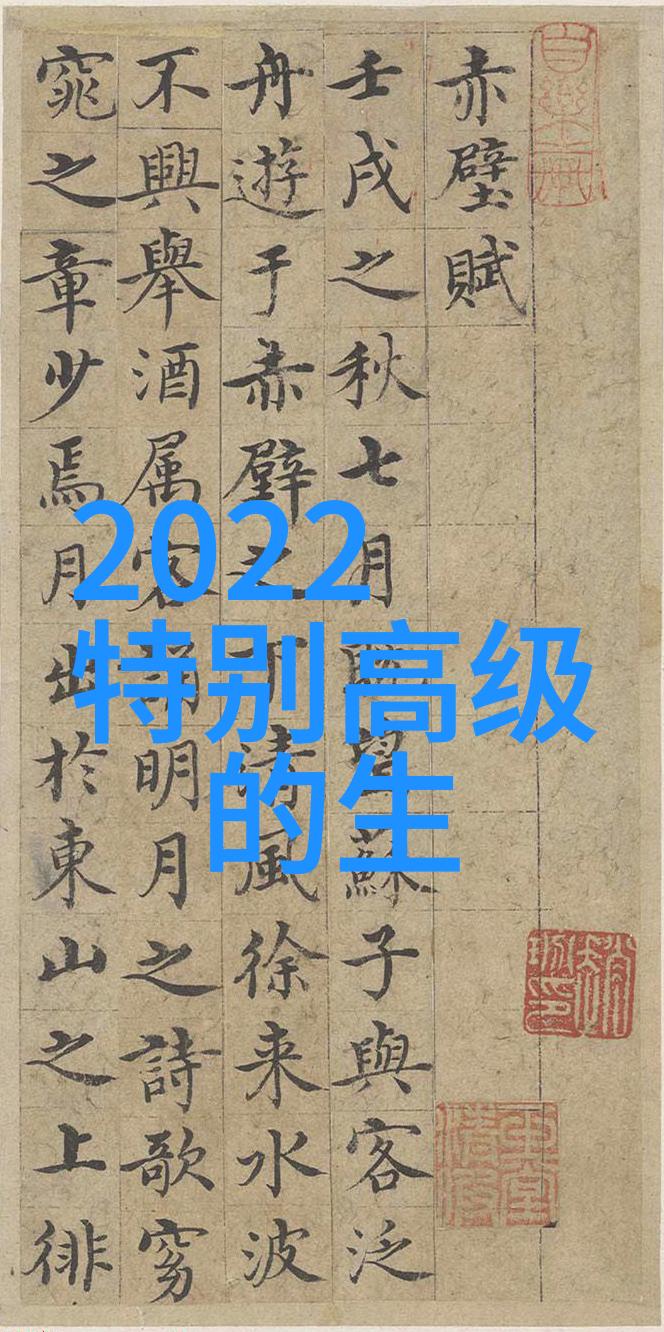 赤壁賦
壬戌之秋七月既望蘇子與客泛
舟遊于赤壁之下清風徐来水波
不興舉酒属客誦明月之詩歌窈
窕之章少焉月出於東山之上徘
2022
特别高级
的生